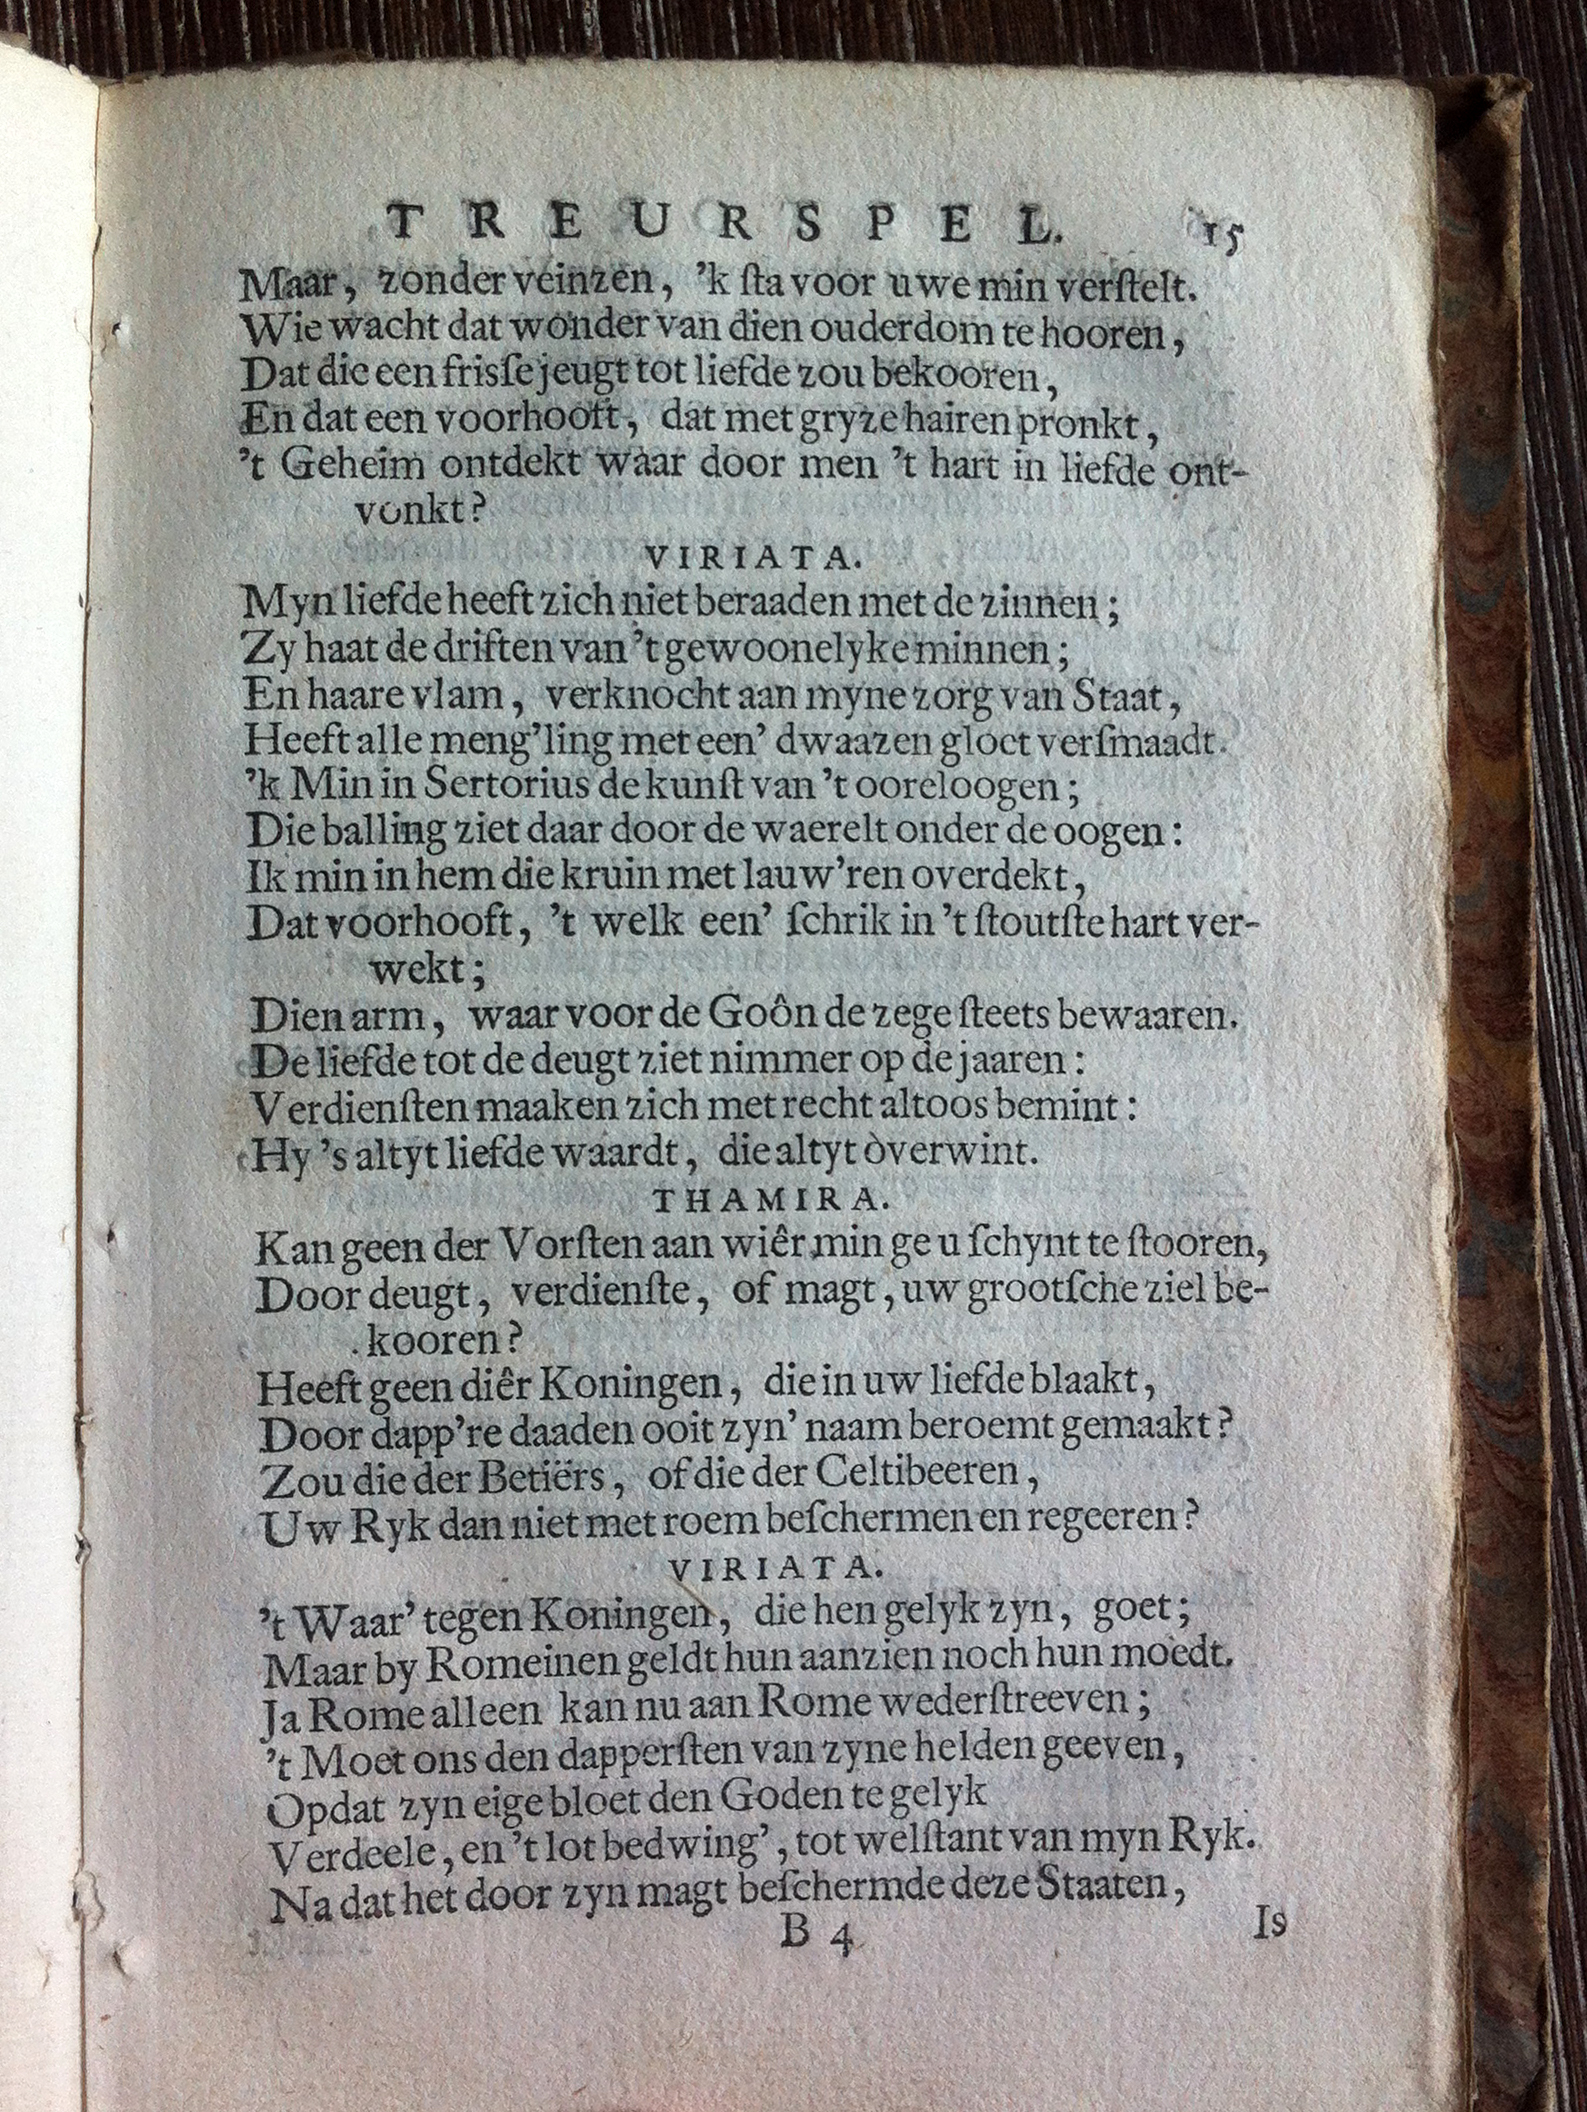 TREURSPEL. 15
Maar, zonder veinzen, 'k ſta voor uwe min verſtelt.
Wie wacht dat wonder van dien ouderdom te hooren,
Dat die een frisſe jeugt tot liefde zou bekooren,
En dat een voorhooft, dat met gryze hairen pronkt,
't Geheim ontdekt waar door men 't hart in liefde ont-
vonkt?
VIRIATA.
Myn liefde heeft zich niet beraaden met de zinnen;
Zy haat de driften van 't gewoonelyke minnen;
En haare vlam, verknocht aan myne zorg van Staat,
Heeft alle meng'ling met een' dwaazen gloet verſmaadt.
'k Min in Sertorius de kunſt van 't ooreloogen;
Die balling ziet daar door de waerelt onder de oogen:
Ik min in hem die kruin met lauw'ren overdekt,
Dat voorhooft, 't welk een' ſchrik in 't ſtoutſte hart ver-
wekt;
Dien arm, waar voor de Goôn de zege ſteets bewaaren.
De liefde tot de deugt ziet nimmer op de jaaren:
Verdienſten maaken zich met recht altoos bemint:
Hy 's altyt liefde waardt, die altyt òverwint.
THAMIRA.
Kan geen der Vorſten aan wiêr min ge u ſchynt te ſtooren,
Door deugt, verdienſte, of magt, uw grootſche ziel be-
kooren?
Heeft geen diêr Koningen, die in uw liefde blaakt,
Door dapp're daaden ooit zyn' naam beroemt gemaakt?
Zou die der Betiërs, of die der Celtibeeren,
Uw Ryk dan niet met roem beſchermen en regeeren?
VIRIATA.
't Waar' tegen Koningen, die hen gelyk zyn, goet;
Maar by Romeinen geldt hun aanzien noch hun moedt.
Ja Rome alleen kan nu aan Rome wederſtreeven;
't Moet ons den dapperſten van zyne helden geeven,
Opdat zyn eige bloet den Goden te gelyk
Verdeele, en 't lot bedwing', tot welſtant van myn Ryk.
Na dat het door zyn magt beſchermde deze Staaten,
B 4 Is